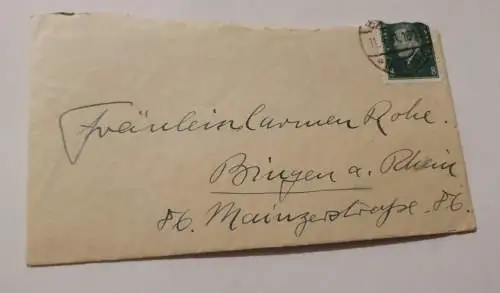 Fräulein Carmen Rohe.
Bingen a. Rhein
86. Mainzerstraße. 86.